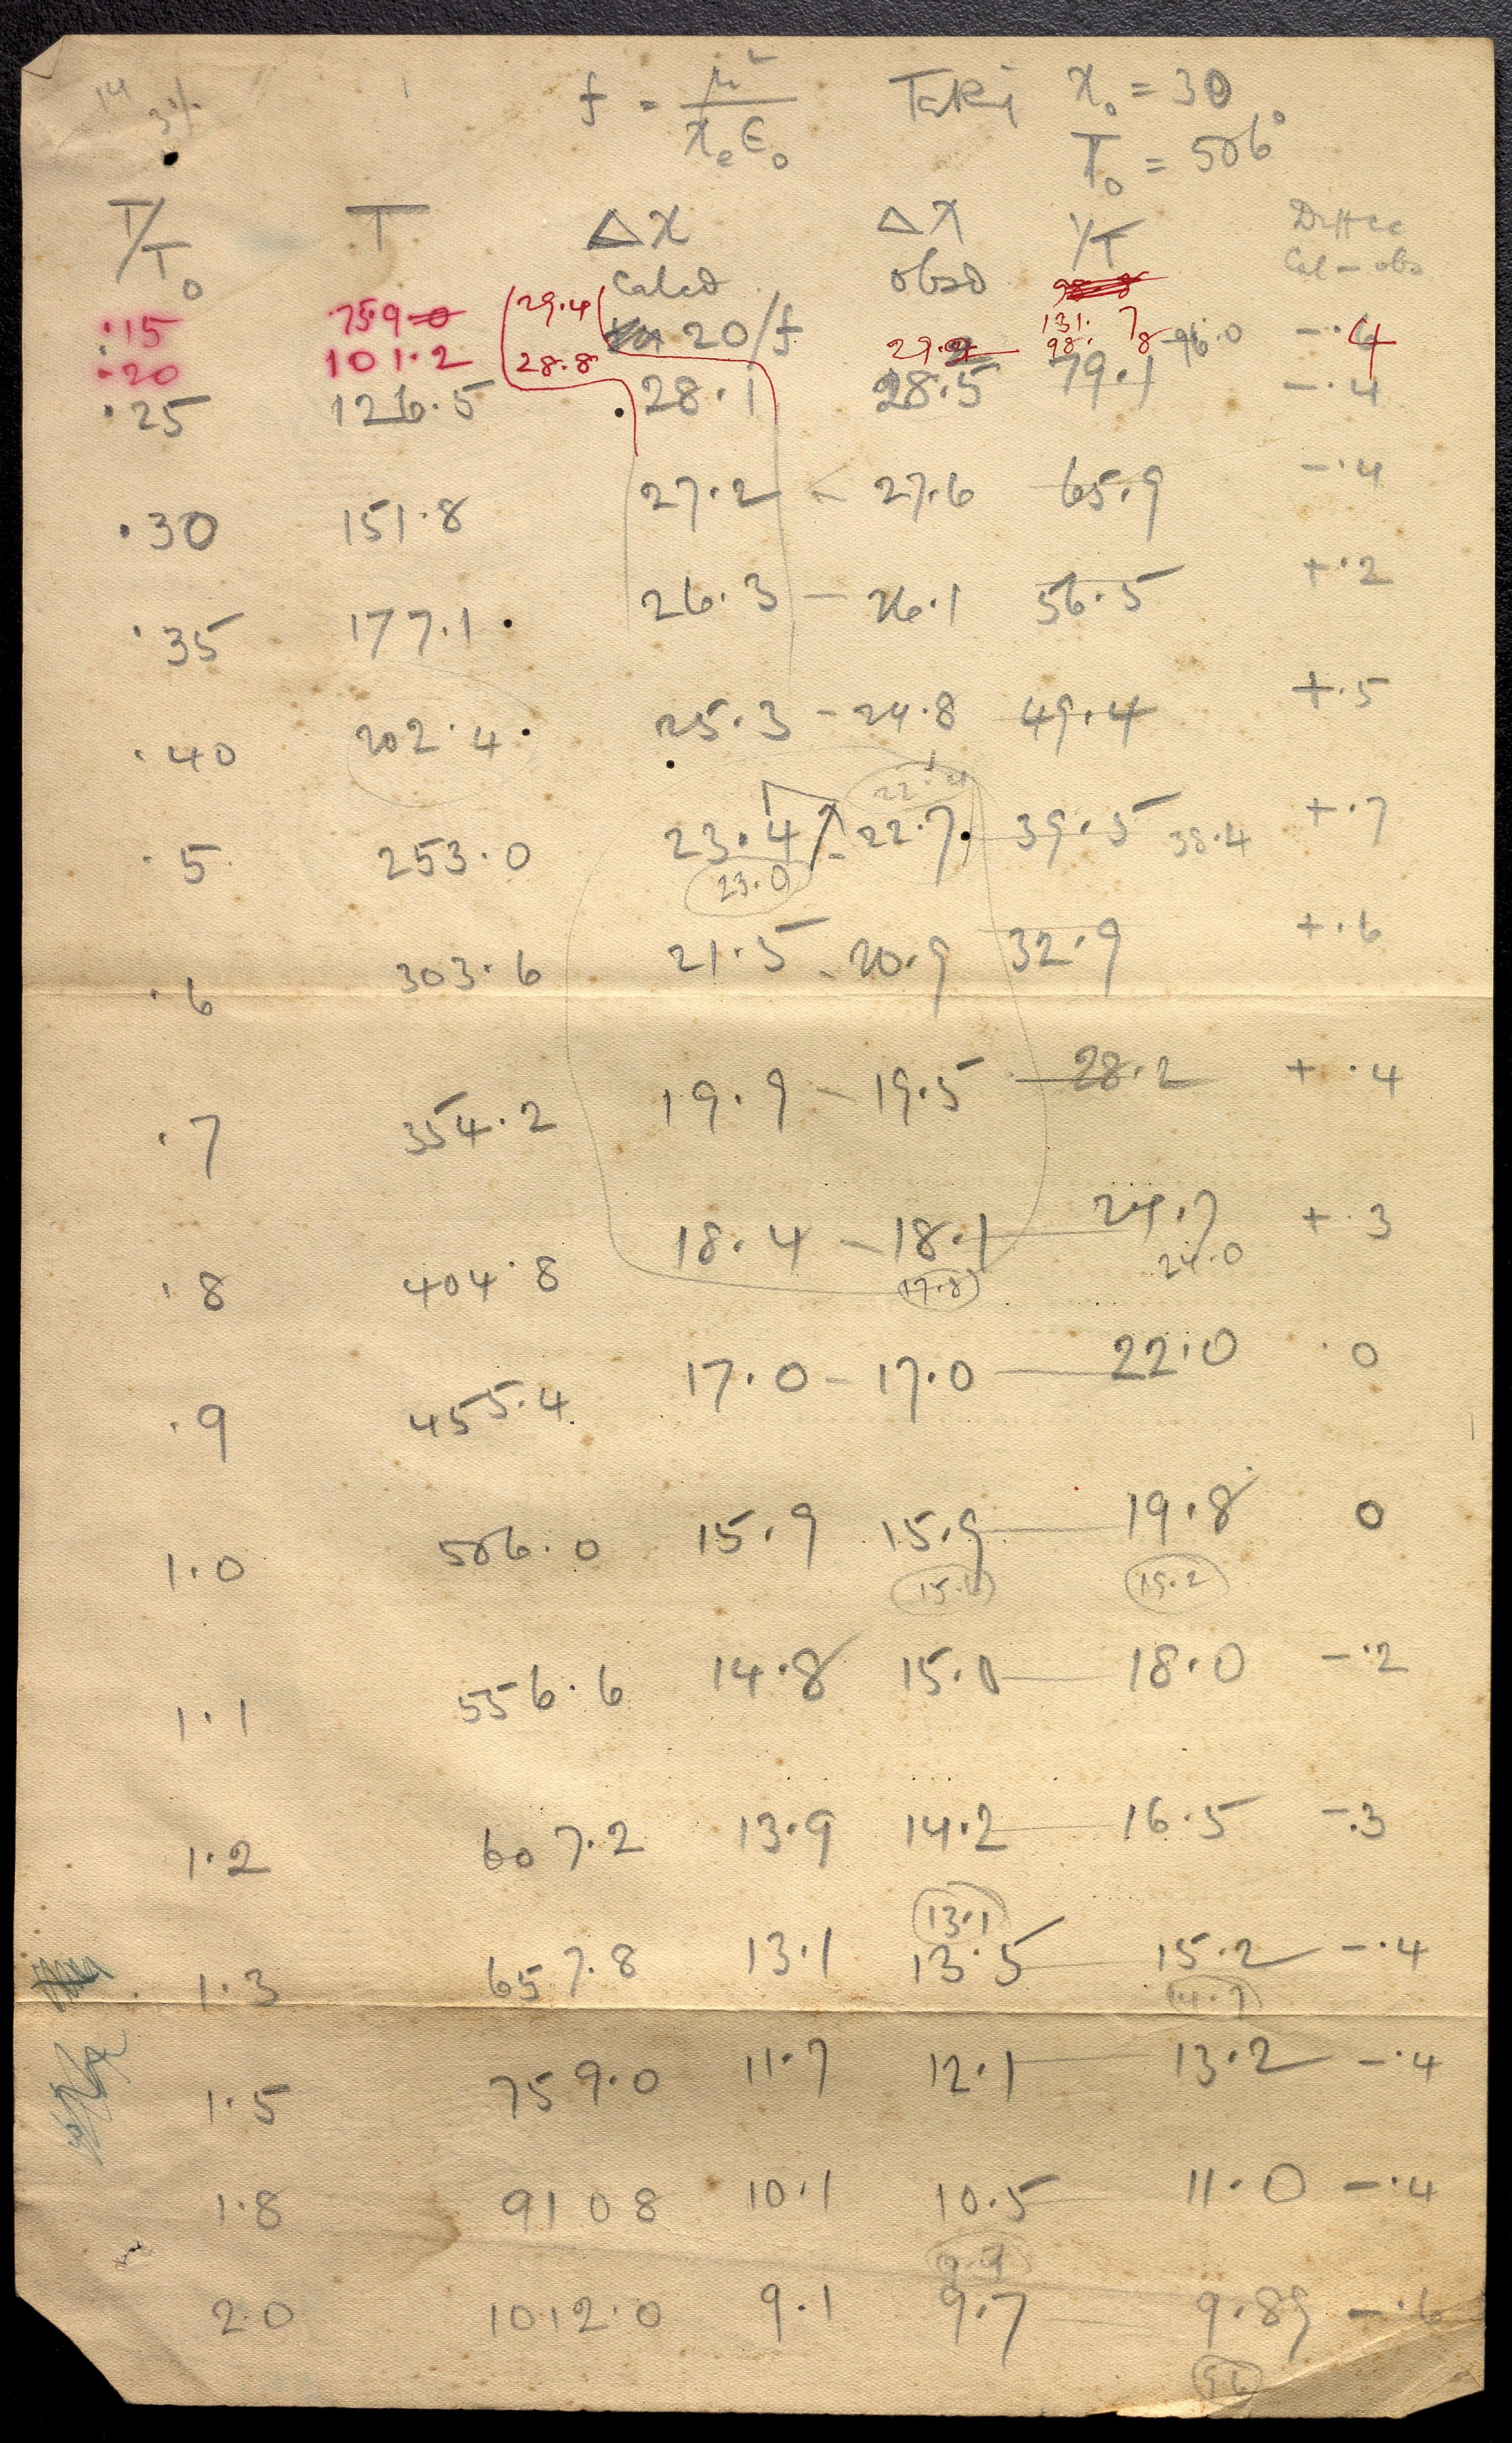 3%
f = μ² / χₑ ε₀ Taking χ₀ = 30
T₀ = 506°
T/T₀ T Δχ Δχ 1/T Diffce
Calcd obsd Cal – obs
·15 75.9 29.4 20/f 29.8 131.7 – ·4
·20 101.2 28.8 98.8 96.0
·25 126.5 28.1 28.5 79.1 – ·4
·30 151.8 27.2 – 27.6 65.9 – ·4
·35 177.1 26.3 – 26.1 56.5 + ·2
·40 202.4 25.3 – 24.8 49.4 + ·5
·5 253.0 23.4 – 22.7 39.5 38.4 + ·7
23.0
·6 303.6 21.5 – 20.9 32.9 + ·6
·7 354.2 19.9 – 19.5 28.2 + ·4
·8 404.8 18.4 – 18.1 24.7 + ·3
17.8 24.0
·9 455.4 17.0 – 17.0 22.0 ·0
1.0 506.0 15.9 15.9 19.8 0
19.2
1.1 556.6 14.8 15.0 18.0 – ·2
1.2 607.2 13.9 14.2 16.5 – ·3
13.1
1.3 657.8 13.1 13.5 15.2 – ·4
14.7
1.5 759.0 11.7 12.1 13.2 – ·4
1.8 910 8 10.1 10.5 11.0 – ·4
9.9
2.0 1012.0 9.1 9.7 9.89 – ·6
9.6